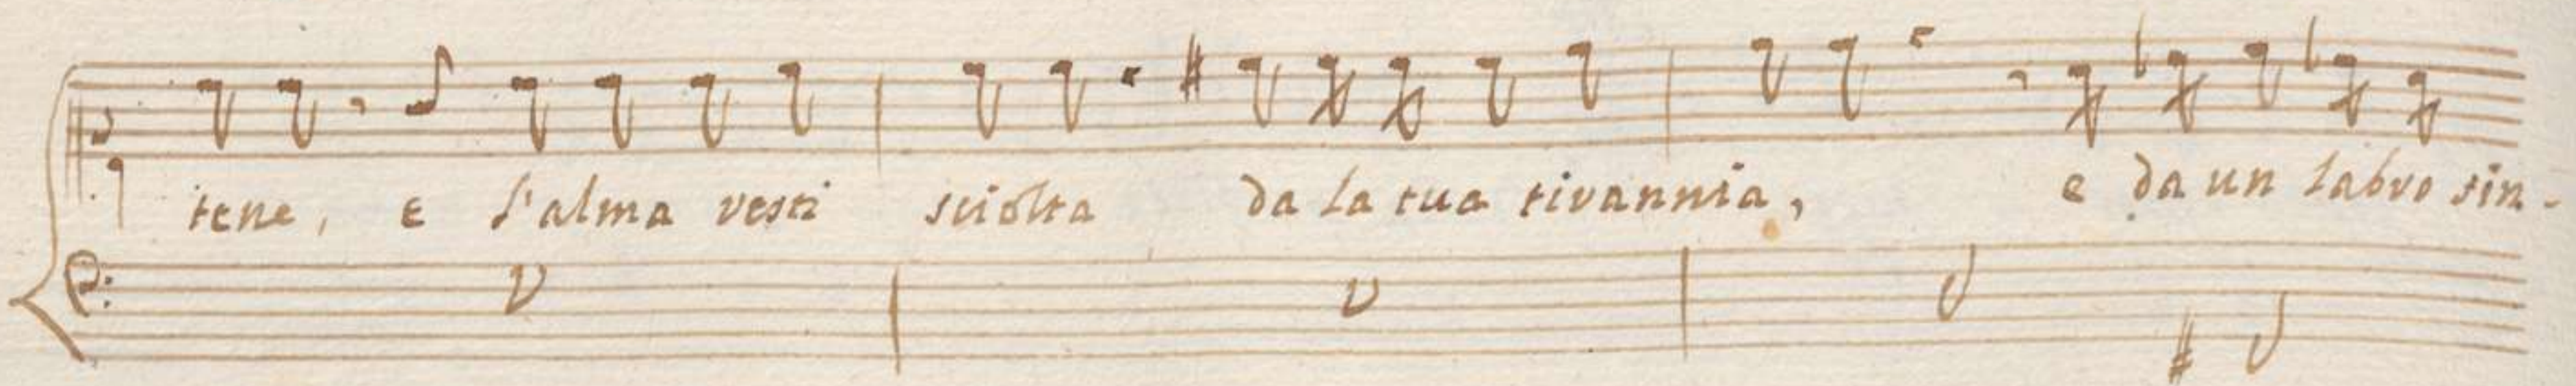 tene, e l'alma resti sciolta da la tua tirannia, e da un labro sin-